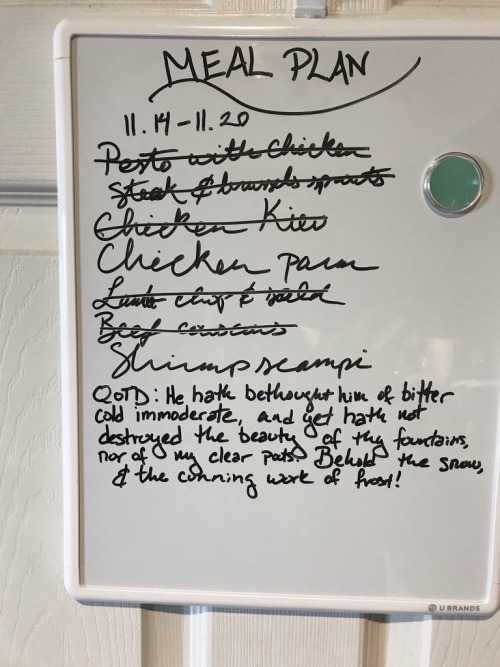 MEAL PLAN
11.14-11.20
Pesto with Chicken
Steak & brussels sprouts
Chicken Kiev
Chicken parm
Lamb chop & salad
Beef couscous
Shrimp scampi
QOTD: He hath bethought him of bitter
cold immoderate, and yet hath not
destroyed the beauty of thy fountains,
nor of my clear pools. Behold the snow,
& the cunning work of frost!
U BRANDS